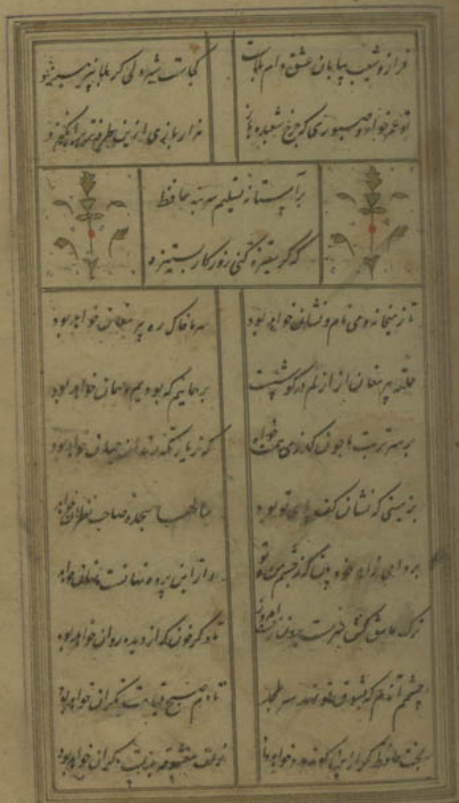 فراز و شیب بیابان عشق دام بلاست کجاست شیردلی کز بلا نپرهیزد
تو عمر خواه و صبوری که چرخ شعبده باز هزار بازی ازین طرفه تر برانگیزد
بر آستانه تسلیم سر بنه حافظ
که گر ستیزه کنی روزکار بستیزد
تا ز میخانه و می نام و نشان خواهد بود سر ما خاک ره پیر مغان خواهد بود
حلقه پیر مغان از ازلم در گوشست بر همانیم که بودیم و همان خواهد بود
بر سر تربت ما چون گذری همت خواه که زیارتگه رندان جهان خواهد بود
بزمینی که نشان کف پای تو بود سالها سجده صاحب نظران خواهد
برو ای زاهد خودبین که ز چشم من و تو راز این پرده نهانست و نهان خواهد
ترک عاشق کش مست برون رفت امروز تا دگر خون که از دیده روان خواهد بود
چشم آندم که ز شوق تو نهد سر بلحد تا دم صبح قیامت نگران خواهد بود
بخت حافظ گر ازین گونه مدد خواهد داد زلف معشوقه بدست دگران خواهد بود